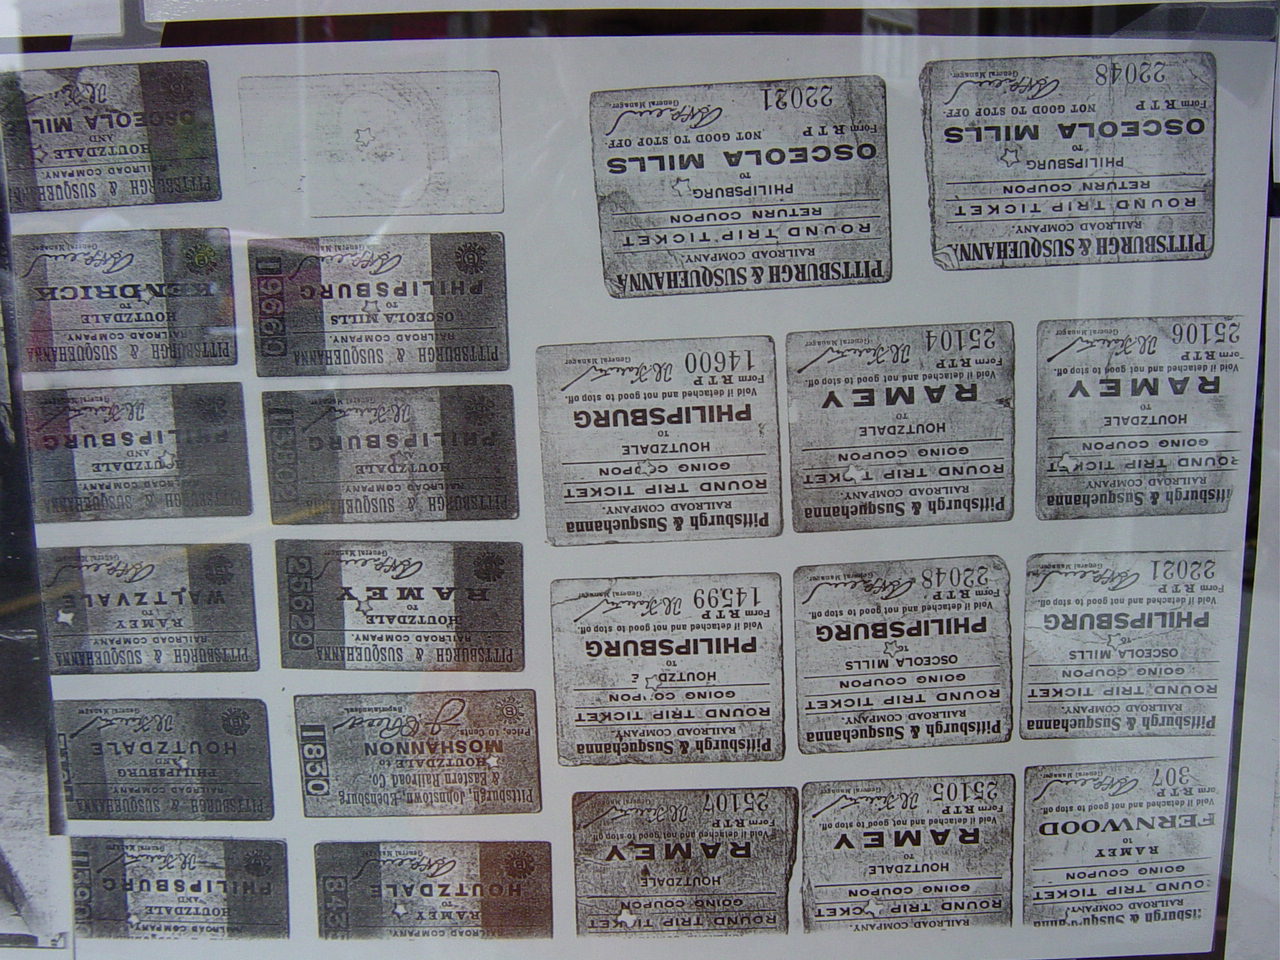 RAILROAD COMPANY.
ROUND TRIP TICKET
GOING COUPON
RAMEY
TO
FERNWOOD
Void if detached and not good to stop off.
Form RTP
307
RAILROAD COMPANY.
ROUND TRIP TICKET
GOING COUPON
HOUTZDALE
TO
RAMEY
Void if detached and not good to stop off.
Form RTP
25105
General Manager
ROUND TRIP TICKET
GOING COUPON
HOUTZDALE
TO
RAMEY
Void if detached and not good to stop off.
Form RTP
25107
General Manager
RAILROAD COMPANY.
RAMEY
AND
HOUTZDALE
General Manager
RAILROAD COMPANY.
HOUTZDALE
AND
PHILIPSBURG
General Manager
Pittsburgh & Susquehanna
RAILROAD COMPANY.
ROUND TRIP TICKET
GOING COUPON
OSCEOLA MILLS
TO
PHILIPSBURG
Void if detached and not good to stop off.
Form RTP
22021
General Manager
Pittsburgh & Susquehanna
RAILROAD COMPANY.
ROUND TRIP TICKET
GOING COUPON
OSCEOLA MILLS
TO
PHILIPSBURG
Void if detached and not good to stop off.
Form RTP
22048
General Manager
Pittsburgh & Susquehanna
RAILROAD COMPANY.
ROUND TRIP TICKET
GOING COUPON
TO
PHILIPSBURG
Void if detached and not good to stop off.
Form RTP
14599
General Manager
Pittsburgh, Johnstown, Ebensburg
& Eastern Railroad Co.
HOUTZDALE to
MOSHANNON
Price, 10 Cents.
11830
PITTSBURGH & SUSQUEHANNA
RAILROAD COMPANY.
PHILIPSBURG
AND
HOUTZDALE
General Manager
Pittsburgh & Susquehanna
RAILROAD COMPANY.
ROUND TRIP TICKET
GOING COUPON
HOUTZDALE
TO
RAMEY
Void if detached and not good to stop off.
Form RTP
25106
General Manager
Pittsburgh & Susquehanna
RAILROAD COMPANY.
ROUND TRIP TICKET
GOING COUPON
HOUTZDALE
TO
RAMEY
Void if detached and not good to stop off.
Form RTP
25104
General Manager
Pittsburgh & Susquehanna
RAILROAD COMPANY.
ROUND TRIP TICKET
GOING COUPON
HOUTZDALE
TO
PHILIPSBURG
Void if detached and not good to stop off.
Form RTP
14600
General Manager
PITTSBURGH & SUSQUEHANNA
RAILROAD COMPANY.
HOUTZDALE
TO
RAMEY
General Manager
25629
PITTSBURGH & SUSQUEHANNA
RAILROAD COMPANY.
RAMEY
TO
WALTZVALE
General Manager
PITTSBURGH & SUSQUEHANNA
RAILROAD COMPANY.
HOUTZDALE
AND
PHILIPSBURG
General Manager
11802
PITTSBURGH & SUSQUEHANNA
RAILROAD COMPANY.
HOUTZDALE
AND
PHILIPSBURG
General Manager
PITTSBURGH & SUSQUEHANNA
RAILROAD COMPANY.
ROUND TRIP TICKET
RETURN COUPON
PHILIPSBURG
TO
OSCEOLA MILLS
NOT GOOD TO STOP OFF.
Form RTP
22048
General Manager
PITTSBURGH & SUSQUEHANNA
RAILROAD COMPANY.
ROUND TRIP TICKET
RETURN COUPON
PHILIPSBURG
TO
OSCEOLA MILLS
NOT GOOD TO STOP OFF.
Form RTP
22021
General Manager
PITTSBURGH & SUSQUEHANNA
RAILROAD COMPANY.
OSCEOLA MILLS
TO
PHILIPSBURG
General Manager
PITTSBURGH & SUSQUEHANNA
RAILROAD COMPANY.
HOUTZDALE
TO
KENDRICK
General Manager
PITTSBURGH & SUSQUEHANNA
RAILROAD COMPANY.
HOUTZDALE
AND
OSCEOLA MILLS